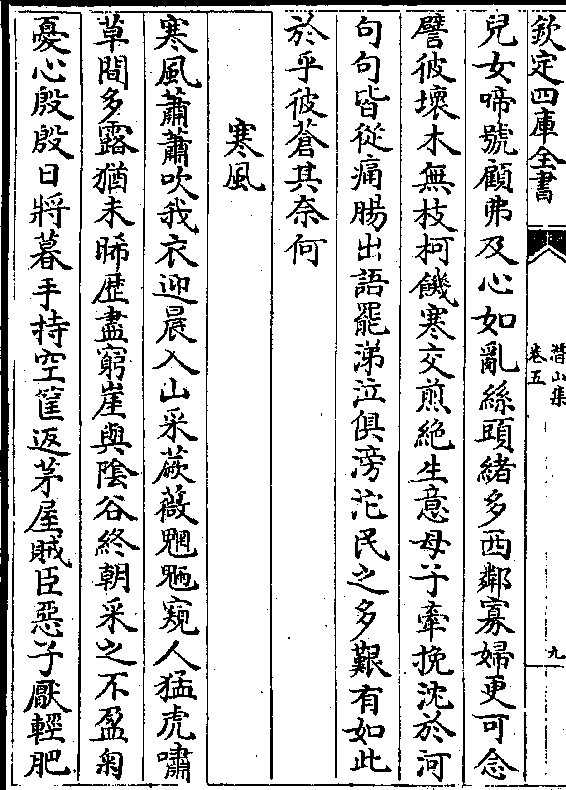 欽定四庫全書
潛山集
卷五
九
兒女啼號顧弗及心如亂絲頭緒多西鄰寡婦更可念
譬彼壞木無枝柯饑寒交煎絶生意母子牽挽沈於河
句句皆從痛腸出語罷涕泣俱滂沱民之多艱有如此
於乎彼蒼其奈何
寒風
寒風蕭蕭吹我衣迎晨入山采蕨薇魍魎窺人猛虎嘯
草間多露猶未晞歴盡窮崖與隂谷終朝采之不盈匊
憂心殷殷日將暮手持空筐返茅屋賊臣惡子厭輕肥